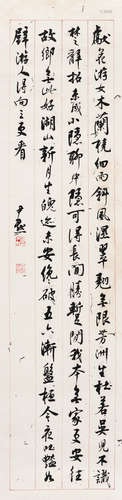 獻花游女木蘭橈細雨斜風溼翠翹無限芳洲生杜若吳兒不識
楚辭招未成小隱聊中隱可得長閒勝暫閒我本無家更安往
故鄉無此好湖山新月生魄迹未安纔破五六漸盤桓今夜吐豔如半
璧游人得向三更看
尹默